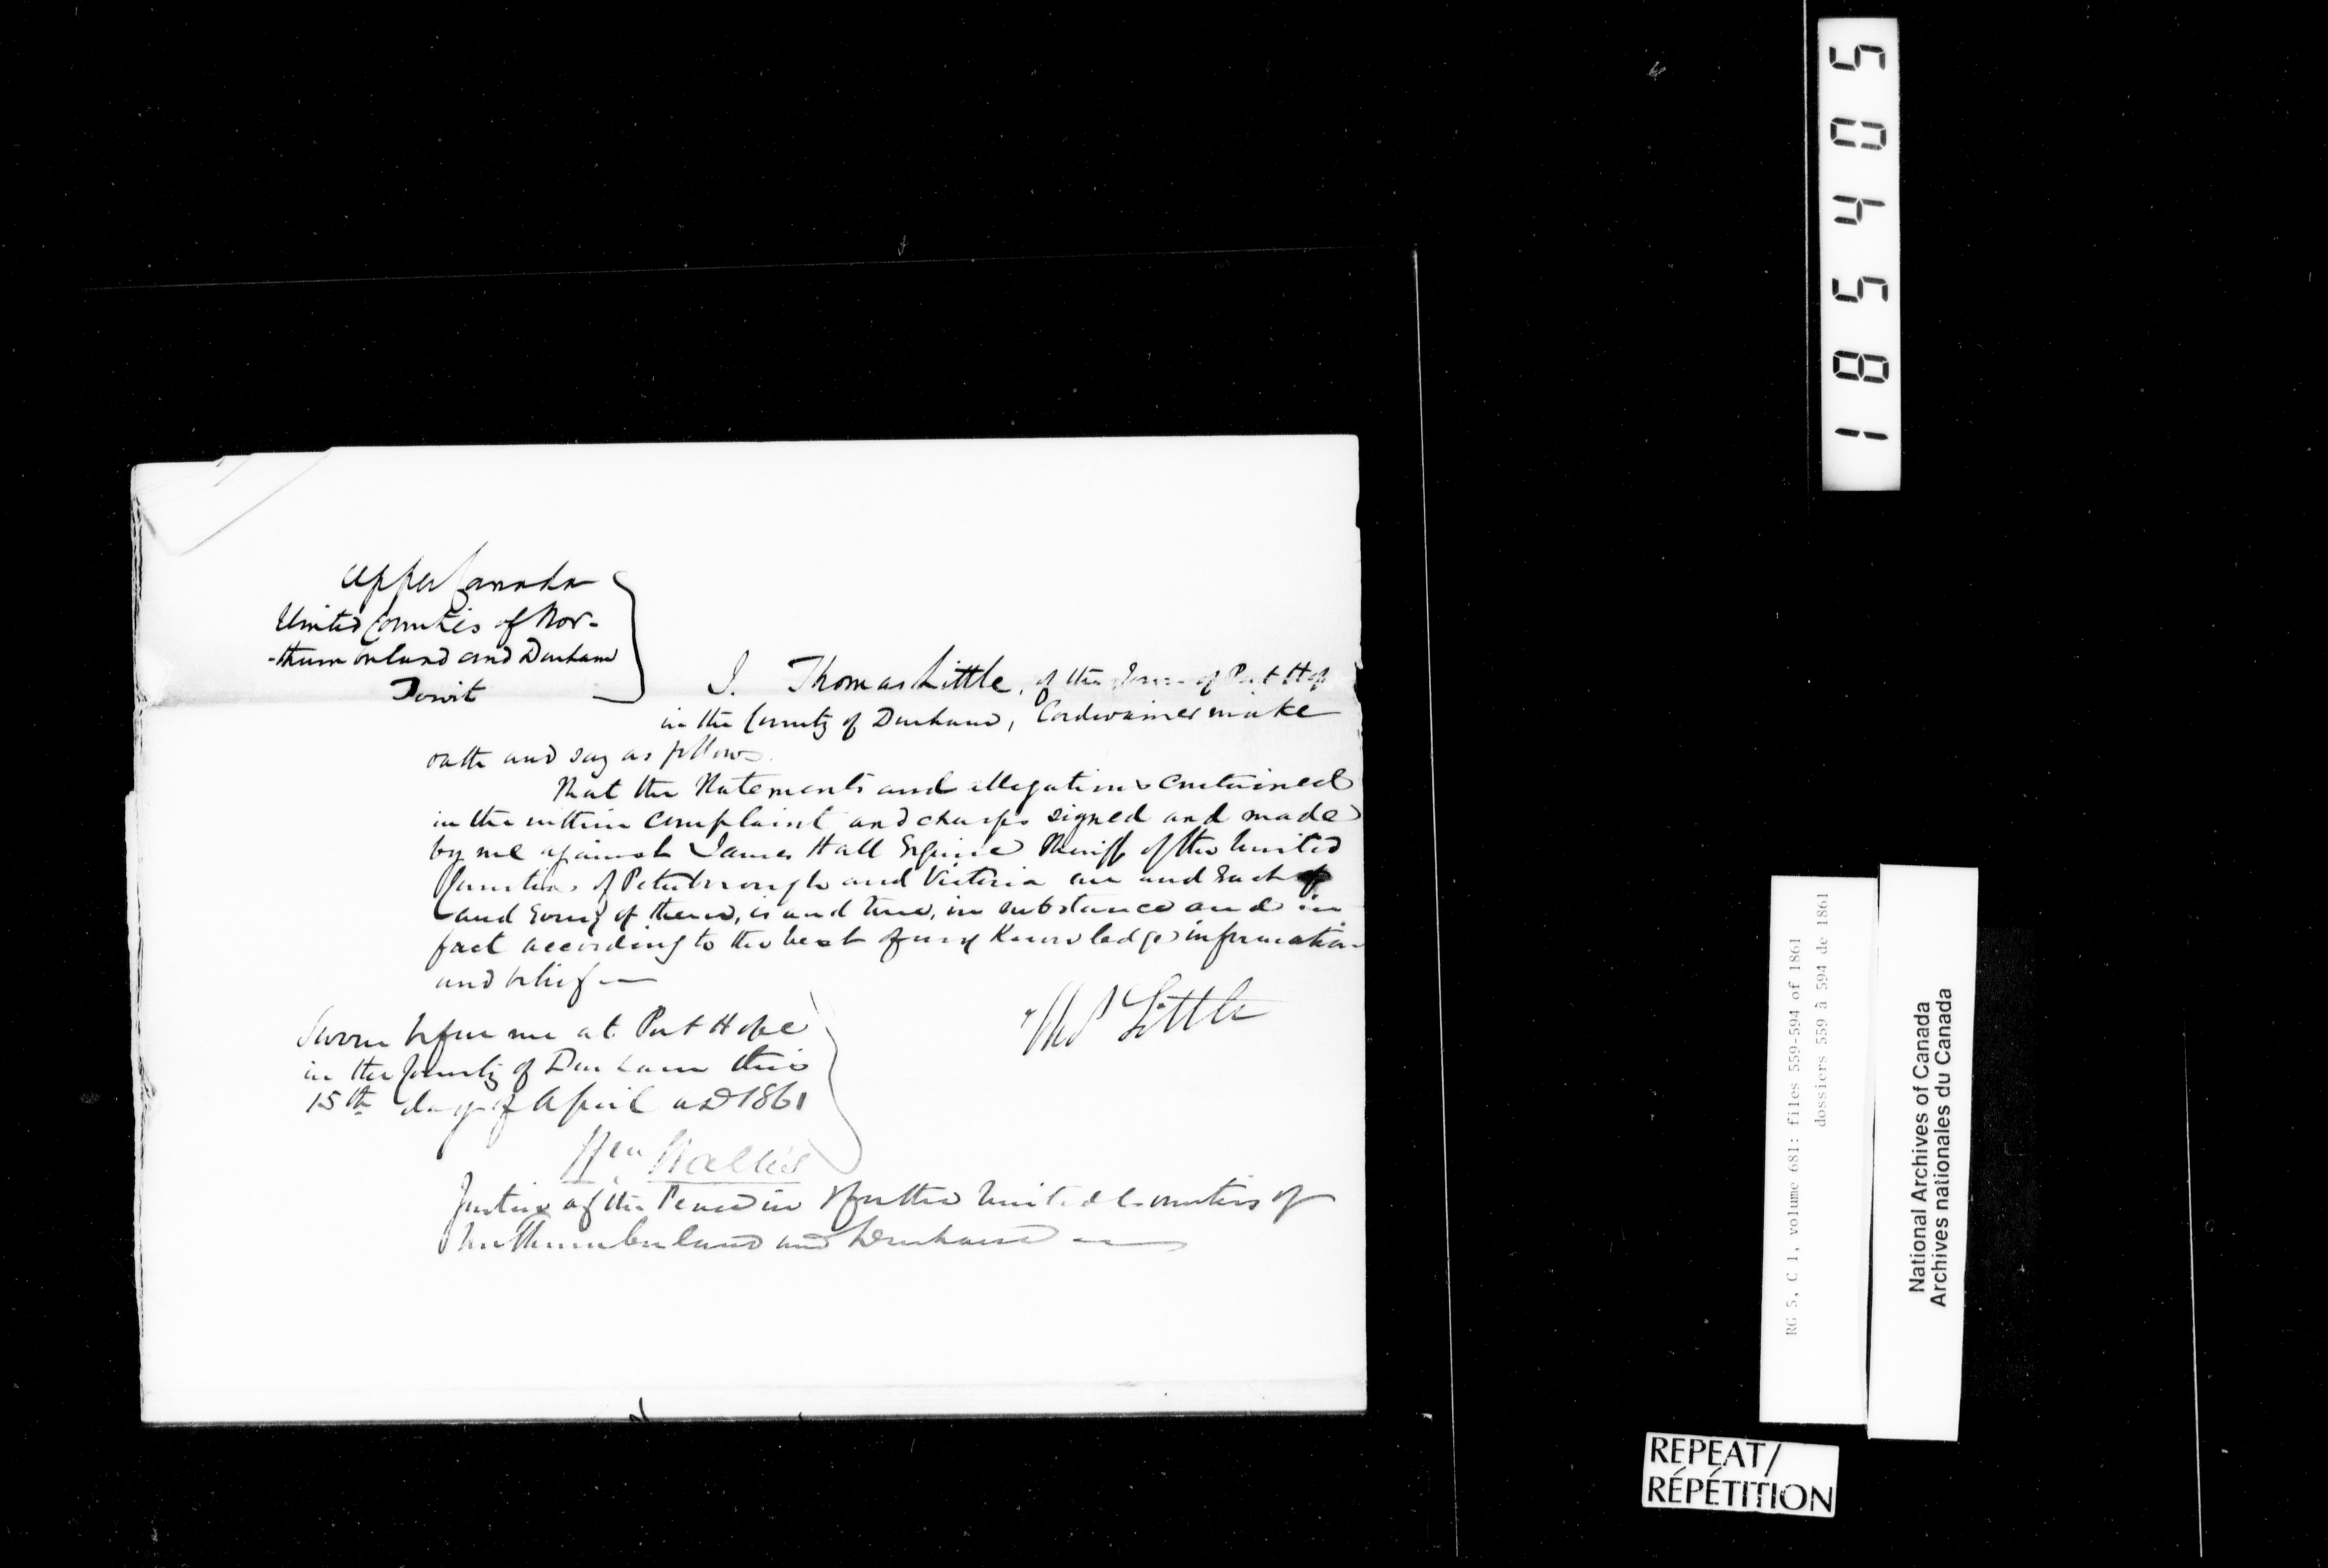 Upper Canada
United Counties of Nor-
-thumberland and Durham
Towit
I. Thomas Little, of the Town of Port Hope
in the County of Durham, Cordwainer make
oath and say as follows.
That the Statements and allegations contained
in the within complaint and charges signed and made
by me against James Hall Esquire Sheriff of the United
Counties of Peterborough and Victoria are and Each
and Every of them, is and true, in substance and in
fact according to the best of my Knowledge information
and belief —
Thos Little
Sworn before me at Port Hope
in the County of Durham this
15th day of April AD 1861
Wm
Justice of the Peace in & for the United Counties of
Northumberland and Durham —
504581
RG 5, C 1, volume 681: files 559-594 of 1861
dossiers 559 à 594 de 1861
National Archives of Canada
Archives nationales du Canada
REPEAT/
RÉPÉTITION